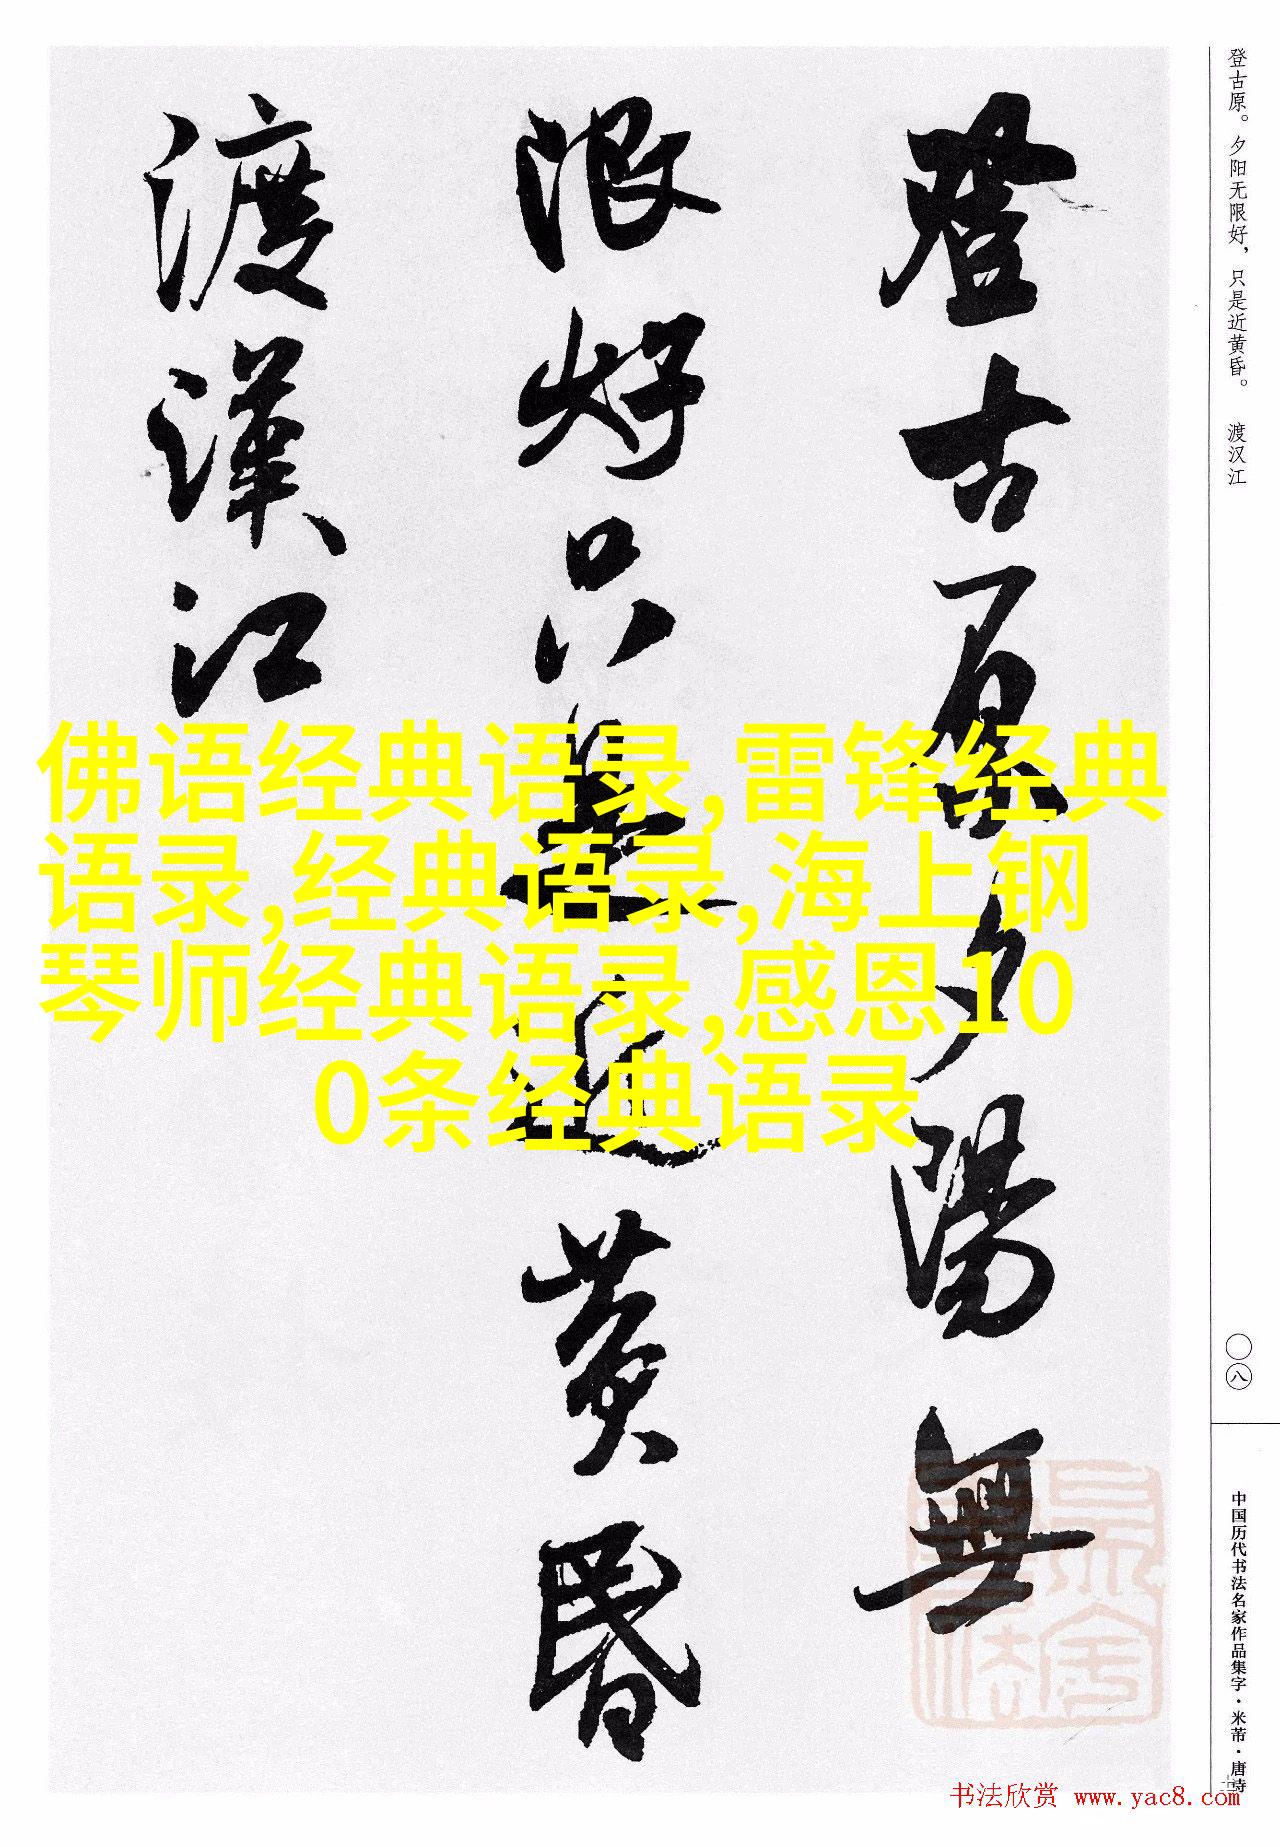 登古原夕陽無
限好只是近黄昏
渡漢江
登古原。夕阳无限好，只是近黄昏。 渡汉江
〇八
中国历代书法名家作品集字·米芾·唐诗
佛语经典语录,雷锋经典
语录,经典语录,海上钢
琴师经典语录,感恩10
0条经典语录
书法欣赏 www.yac8.com